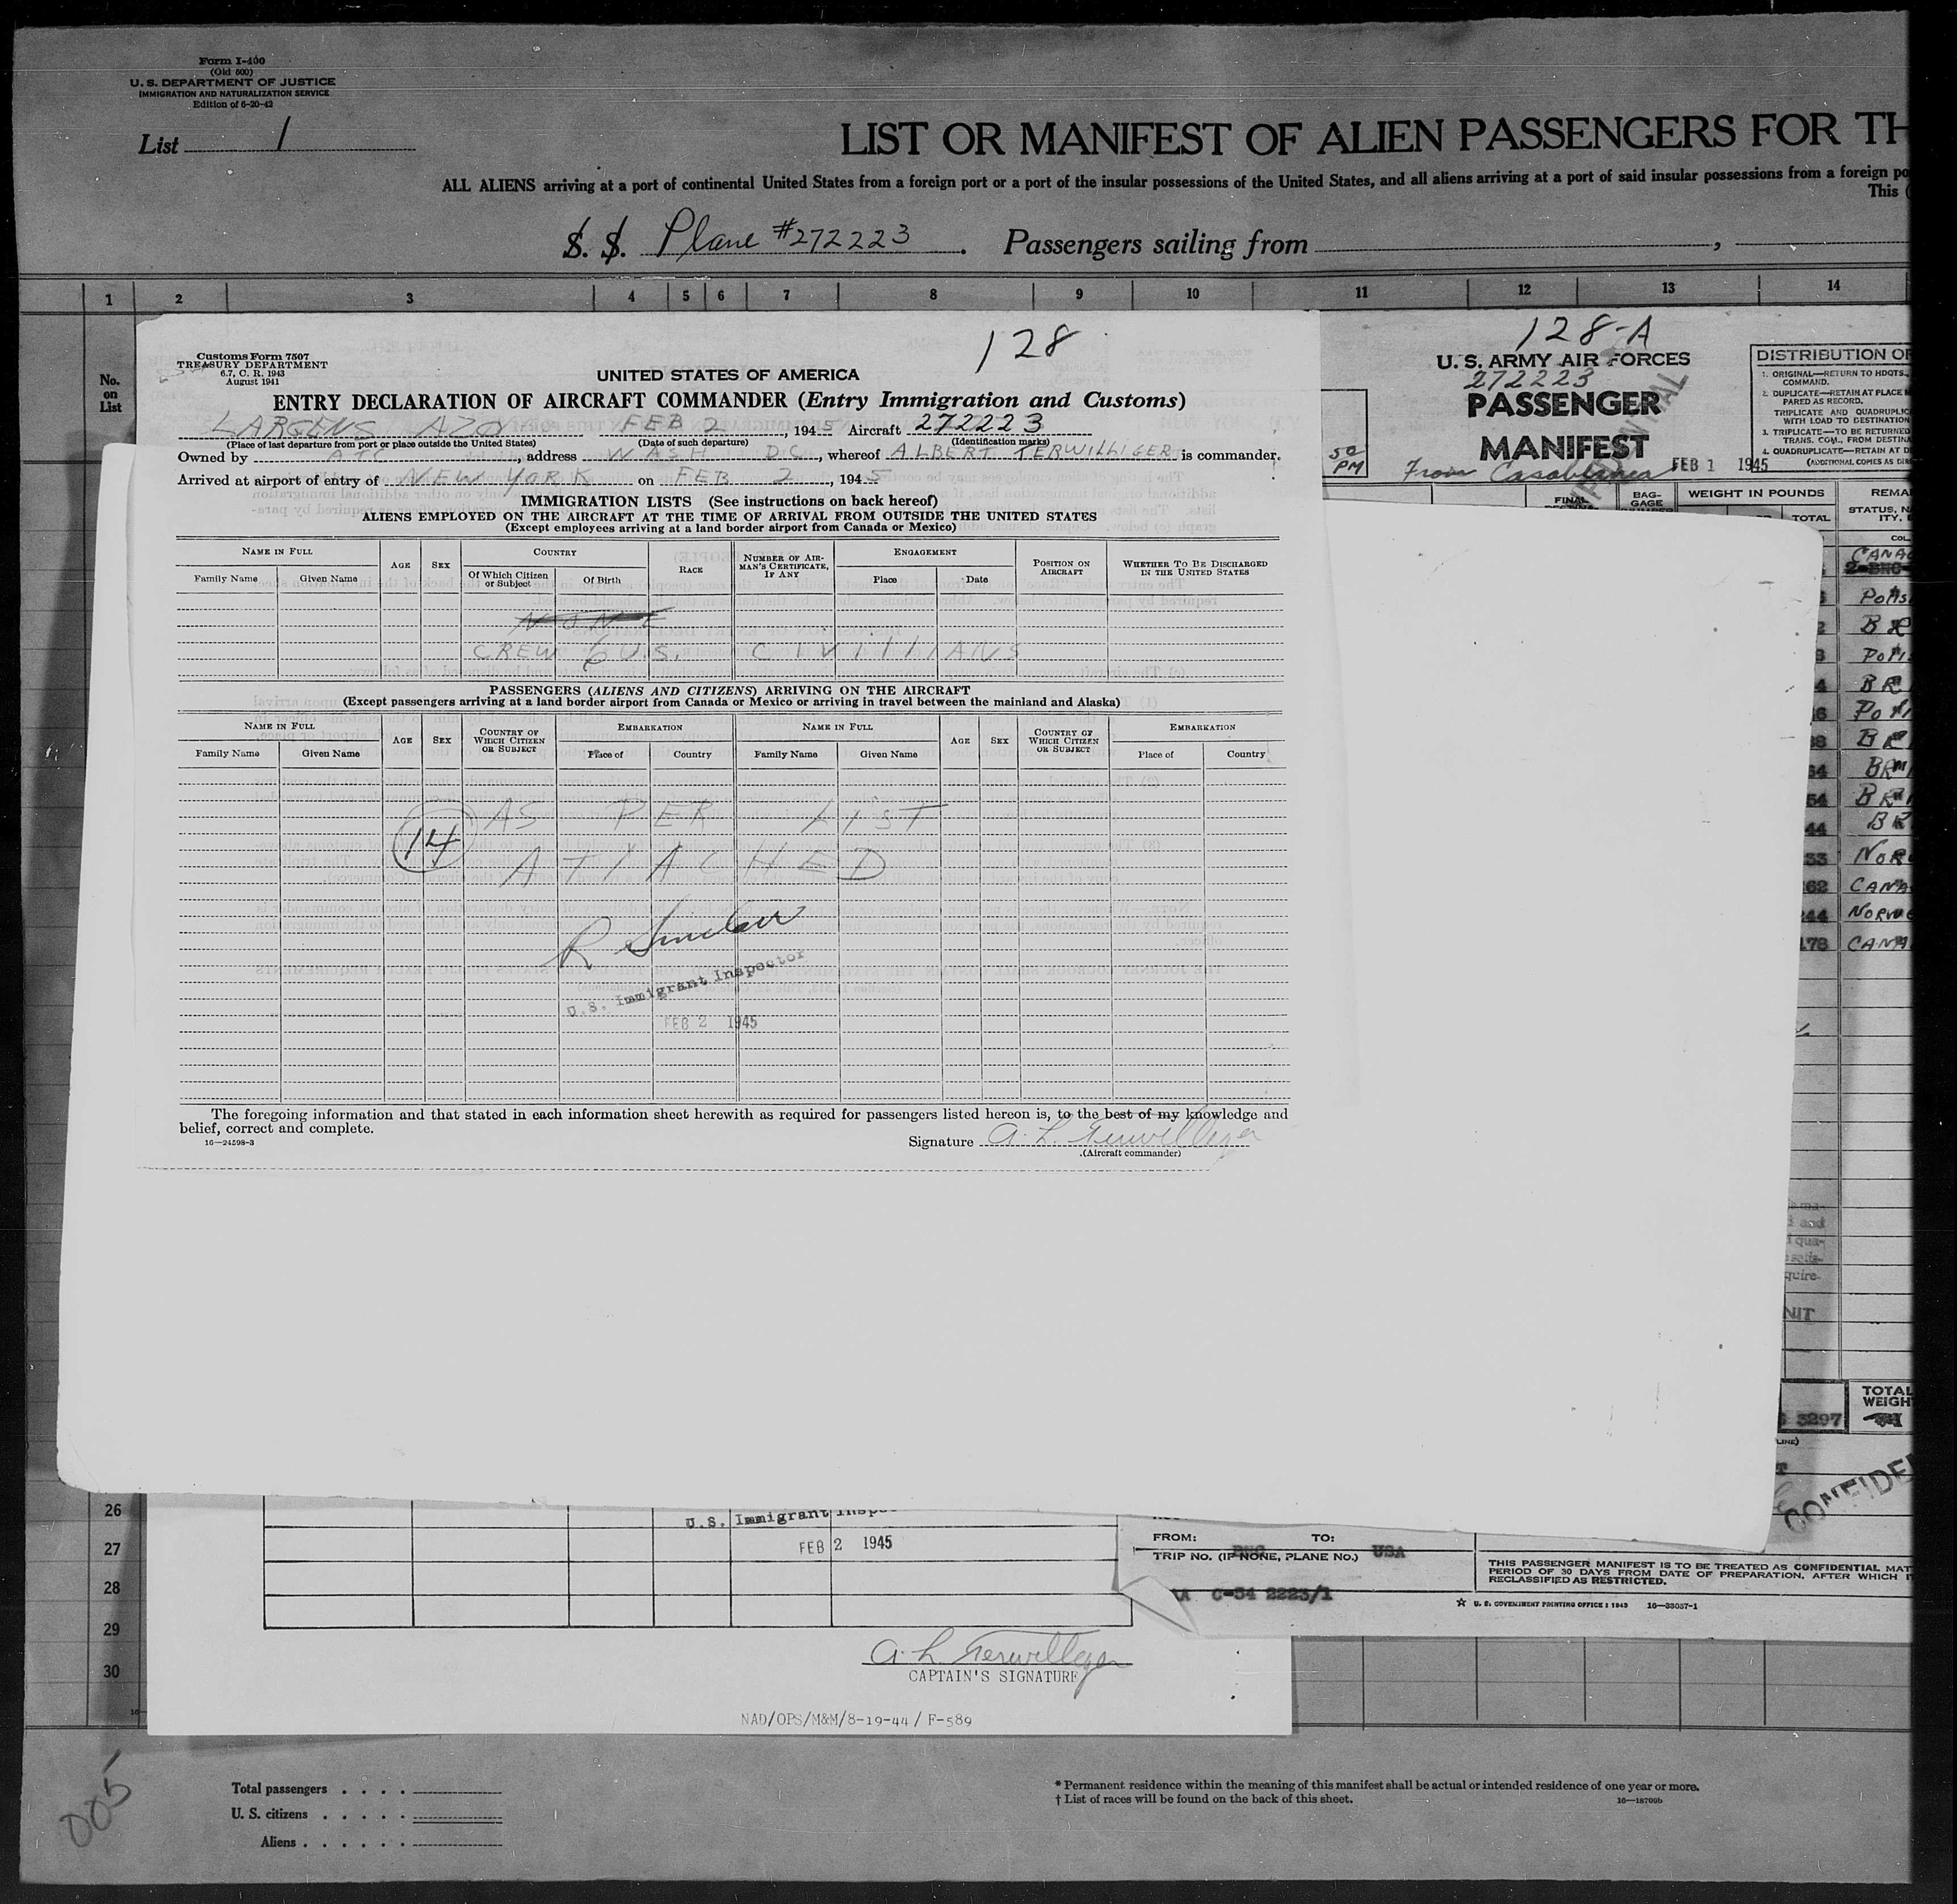 Form I-400
(Old 500)
U. S. DEPARTMENT OF JUSTICE
IMMIGRATION AND NATURALIZATION SERVICE
Edition of 6-20-42
List 1
LIST OR MANIFEST OF ALIEN PASSENGERS FOR TH
ALL ALIENS arriving at a port of continental United States from a foreign port or a port of the insular possessions of the United States, and all aliens arriving at a port of said insular possessions from a foreign po
This (
S. S. Plane #272223. Passengers sailing from
1 2 3 4 5 6 7 8 9 10 11 12 13 14
No.
on
List
128
Customs Form 7507
TREASURY DEPARTMENT
6.7, C. R. 1943
August 1941
UNITED STATES OF AMERICA
ENTRY DECLARATION OF AIRCRAFT COMMANDER (Entry Immigration and Customs)
LARGENS AZO FEB 2, 1945 Aircraft 272223
(Place of last departure from port or place outside the United States) (Date of such departure) (Identification marks)
Owned by ATC, address WASH DC, whereof ALBERT TERWILLIGER is commander.
Arrived at airport of entry of NEW YORK on FEB 2, 1945
IMMIGRATION LISTS (See instructions on back hereof)
ALIENS EMPLOYED ON THE AIRCRAFT AT THE TIME OF ARRIVAL FROM OUTSIDE THE UNITED STATES
(Except employees arriving at a land border airport from Canada or Mexico)
NAME IN FULL AGE SEX COUNTRY RACE NUMBER OF AIRMAN'S CERTIFICATE, IF ANY ENGAGEMENT POSITION ON AIRCRAFT WHETHER TO BE DISCHARGED IN THE UNITED STATES
Family Name Given Name Of Which Citizen or Subject Of Birth Place Date
NONE
CREW 6 U.S. CIVILLIANS
PASSENGERS (ALIENS AND CITIZENS) ARRIVING ON THE AIRCRAFT
(Except passengers arriving at a land border airport from Canada or Mexico or arriving in travel between the mainland and Alaska)
NAME IN FULL AGE SEX COUNTRY OF WHICH CITIZEN OR SUBJECT EMBARKATION NAME IN FULL AGE SEX COUNTRY OF WHICH CITIZEN OR SUBJECT EMBARKATION
Family Name Given Name Place of Country Family Name Given Name Place of Country
AS PER LIST
14
ATTACHED
R Sinclair
U.S. Immigrant Inspector
FEB 2 1945
The foregoing information and that stated in each information sheet herewith as required for passengers listed hereon is, to the best of my knowledge and
belief, correct and complete.
16—24598-3
Signature A. L. Terwilliger
(Aircraft commander)
128-A
U. S. ARMY AIR FORCES
272223
PASSENGER
MANIFEST
From Casablanca FEB 1 1945
50
PM
DISTRIBUTION OF
1. ORIGINAL—RETURN TO HDQTS.,
COMMAND.
2. DUPLICATE—RETAIN AT PLACE
PARED AS RECORD.
TRIPLICATE AND QUADRUPLIC
WITH LOAD TO DESTINATION
3. TRIPLICATE—TO BE RETURNED
TRANS. COM., FROM DESTINA
4. QUADRUPLICATE—RETAIN AT D
(ADDITIONAL COPIES AS DIR
FINAL
BAGGAGE
NUMBER
WEIGHT IN POUNDS
TOTAL
REMA
STATUS, N
ITY,
COL.
CANA
BR
BR
BR
54 BR
44 BR
33 NOR
62 CANA
44 NORWE
178 CANA
NIT
3297
TOTAL
WEIGH
CONFIDE
26
27
28
29
30
U.S. Immigrant Inspe
FEB 2 1945
A. L. Terwilliger
CAPTAIN'S SIGNATURE
NAD/OPS/M&M/8-19-44 / F-589
FROM: TO:
BNG USA
TRIP NO. (IF NONE, PLANE NO.)
C-54 2223/1
THIS PASSENGER MANIFEST IS TO BE TREATED AS CONFIDENTIAL MAT
PERIOD OF 30 DAYS FROM DATE OF PREPARATION, AFTER WHICH I
RECLASSIFIED AS RESTRICTED.
☆ U. S. GOVERNMENT PRINTING OFFICE : 1943 16—33057-1
005
Total passengers
U. S. citizens
Aliens
* Permanent residence within the meaning of this manifest shall be actual or intended residence of one year or more.
† List of races will be found on the back of this sheet.
16—18709b